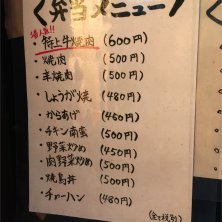 〈弁当メニュー〉
1番人気!!
・特上牛焼肉 (600円)
・焼肉 (500円)
・羊焼肉 (500円)
・しょうが焼 (480円)
・からあげ (460円)
・チキン南蛮 (500円)
・野菜炒め (450円)
・肉野菜炒め (500円)
・焼鳥丼 (500円)
・チャーハン (480円)
(全て税別)